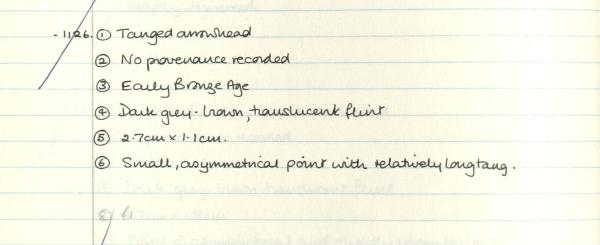 -1126. ① Tanged arrowhead
② No provenance recorded
③ Early Bronze Age
④ Dark grey-brown, translucent flint
⑤ 2.7cm x 1.1cm.
⑥ Small, asymmetrical point with relatively long tang.